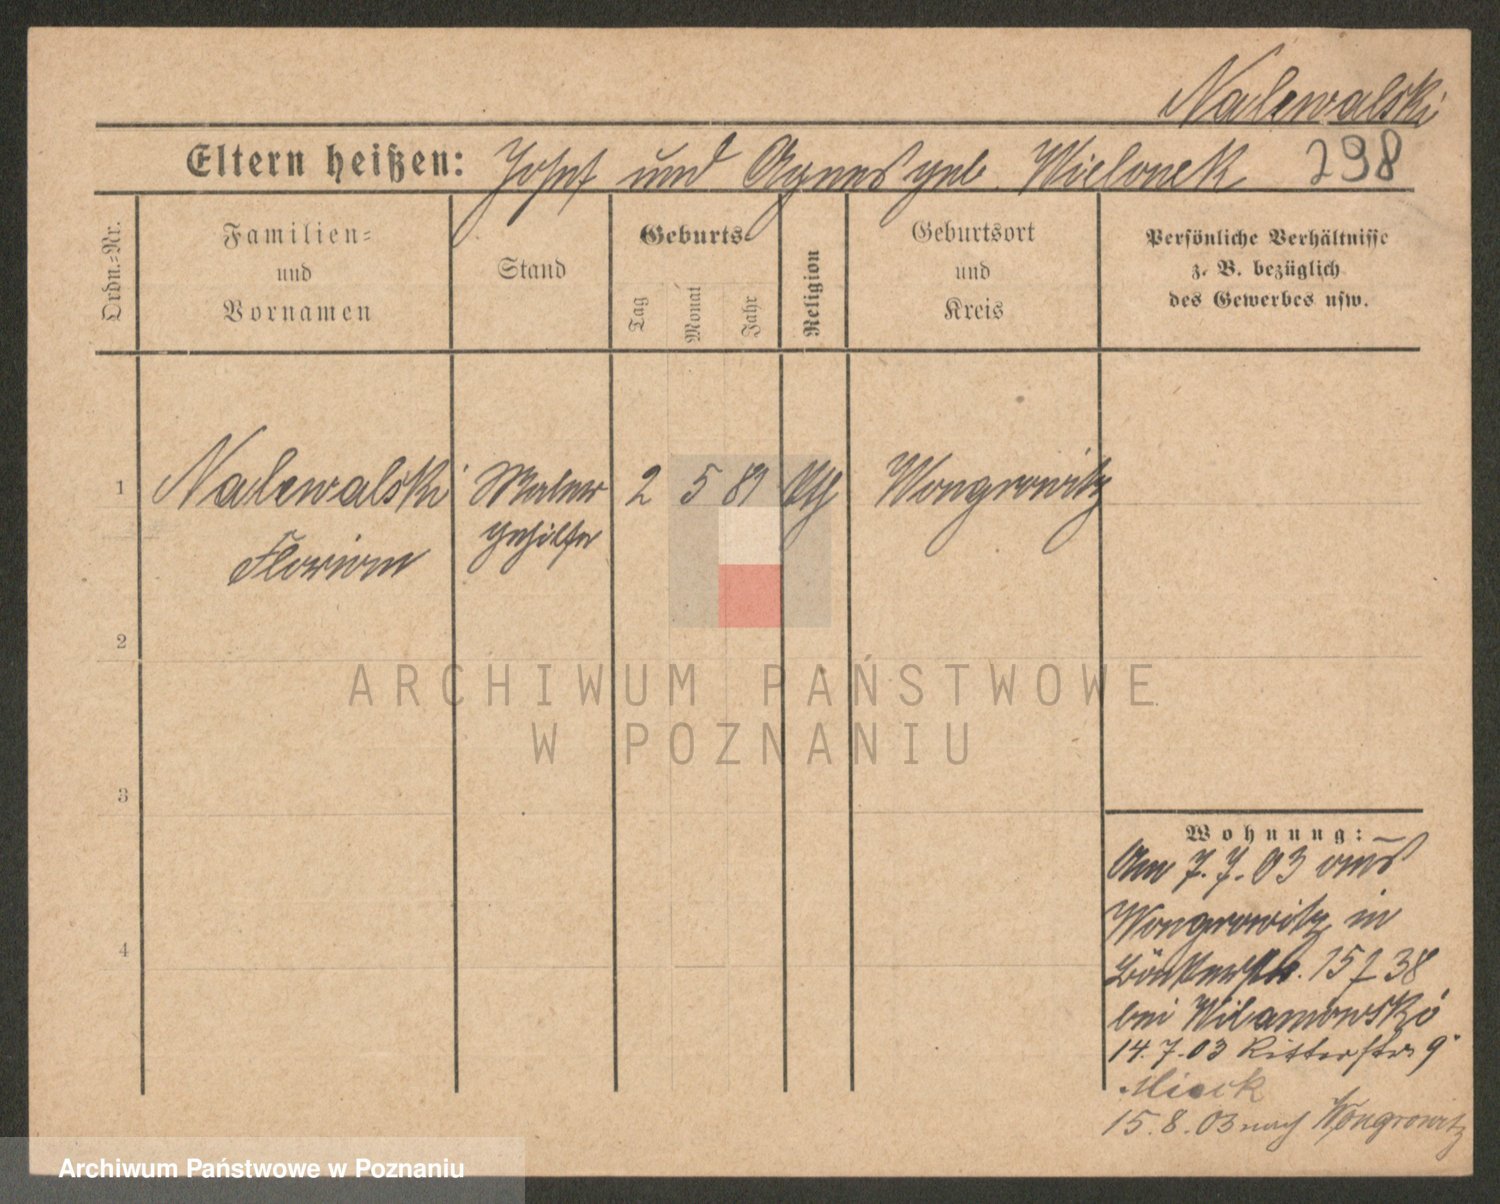 Nalewalski
Eltern heißen: Josef und Agnes geb. Wielonek 298
Ordn.=Nr.
Familien=
und
Vornamen
Stand
Geburts-
Tag
Monat
Jahr
Religion
Geburtsort
und
Kreis
Persönliche Verhältnisse
z. B. bezüglich
des Gewerbes usw.
1 Nalewalski Maler 2 5 81 Wongrowitz
Florian gehilfe
2
3
4
ARCHIWUM PAŃSTWOWE
W POZNANIU
Wohnung:
Am 7.7.03 aus
Wongrowitz in
38
bei Wilamowski
14.7.03 Ritterstr 9
15.8.03 nach Wongrowitz
Archiwum Państwowe w Poznaniu